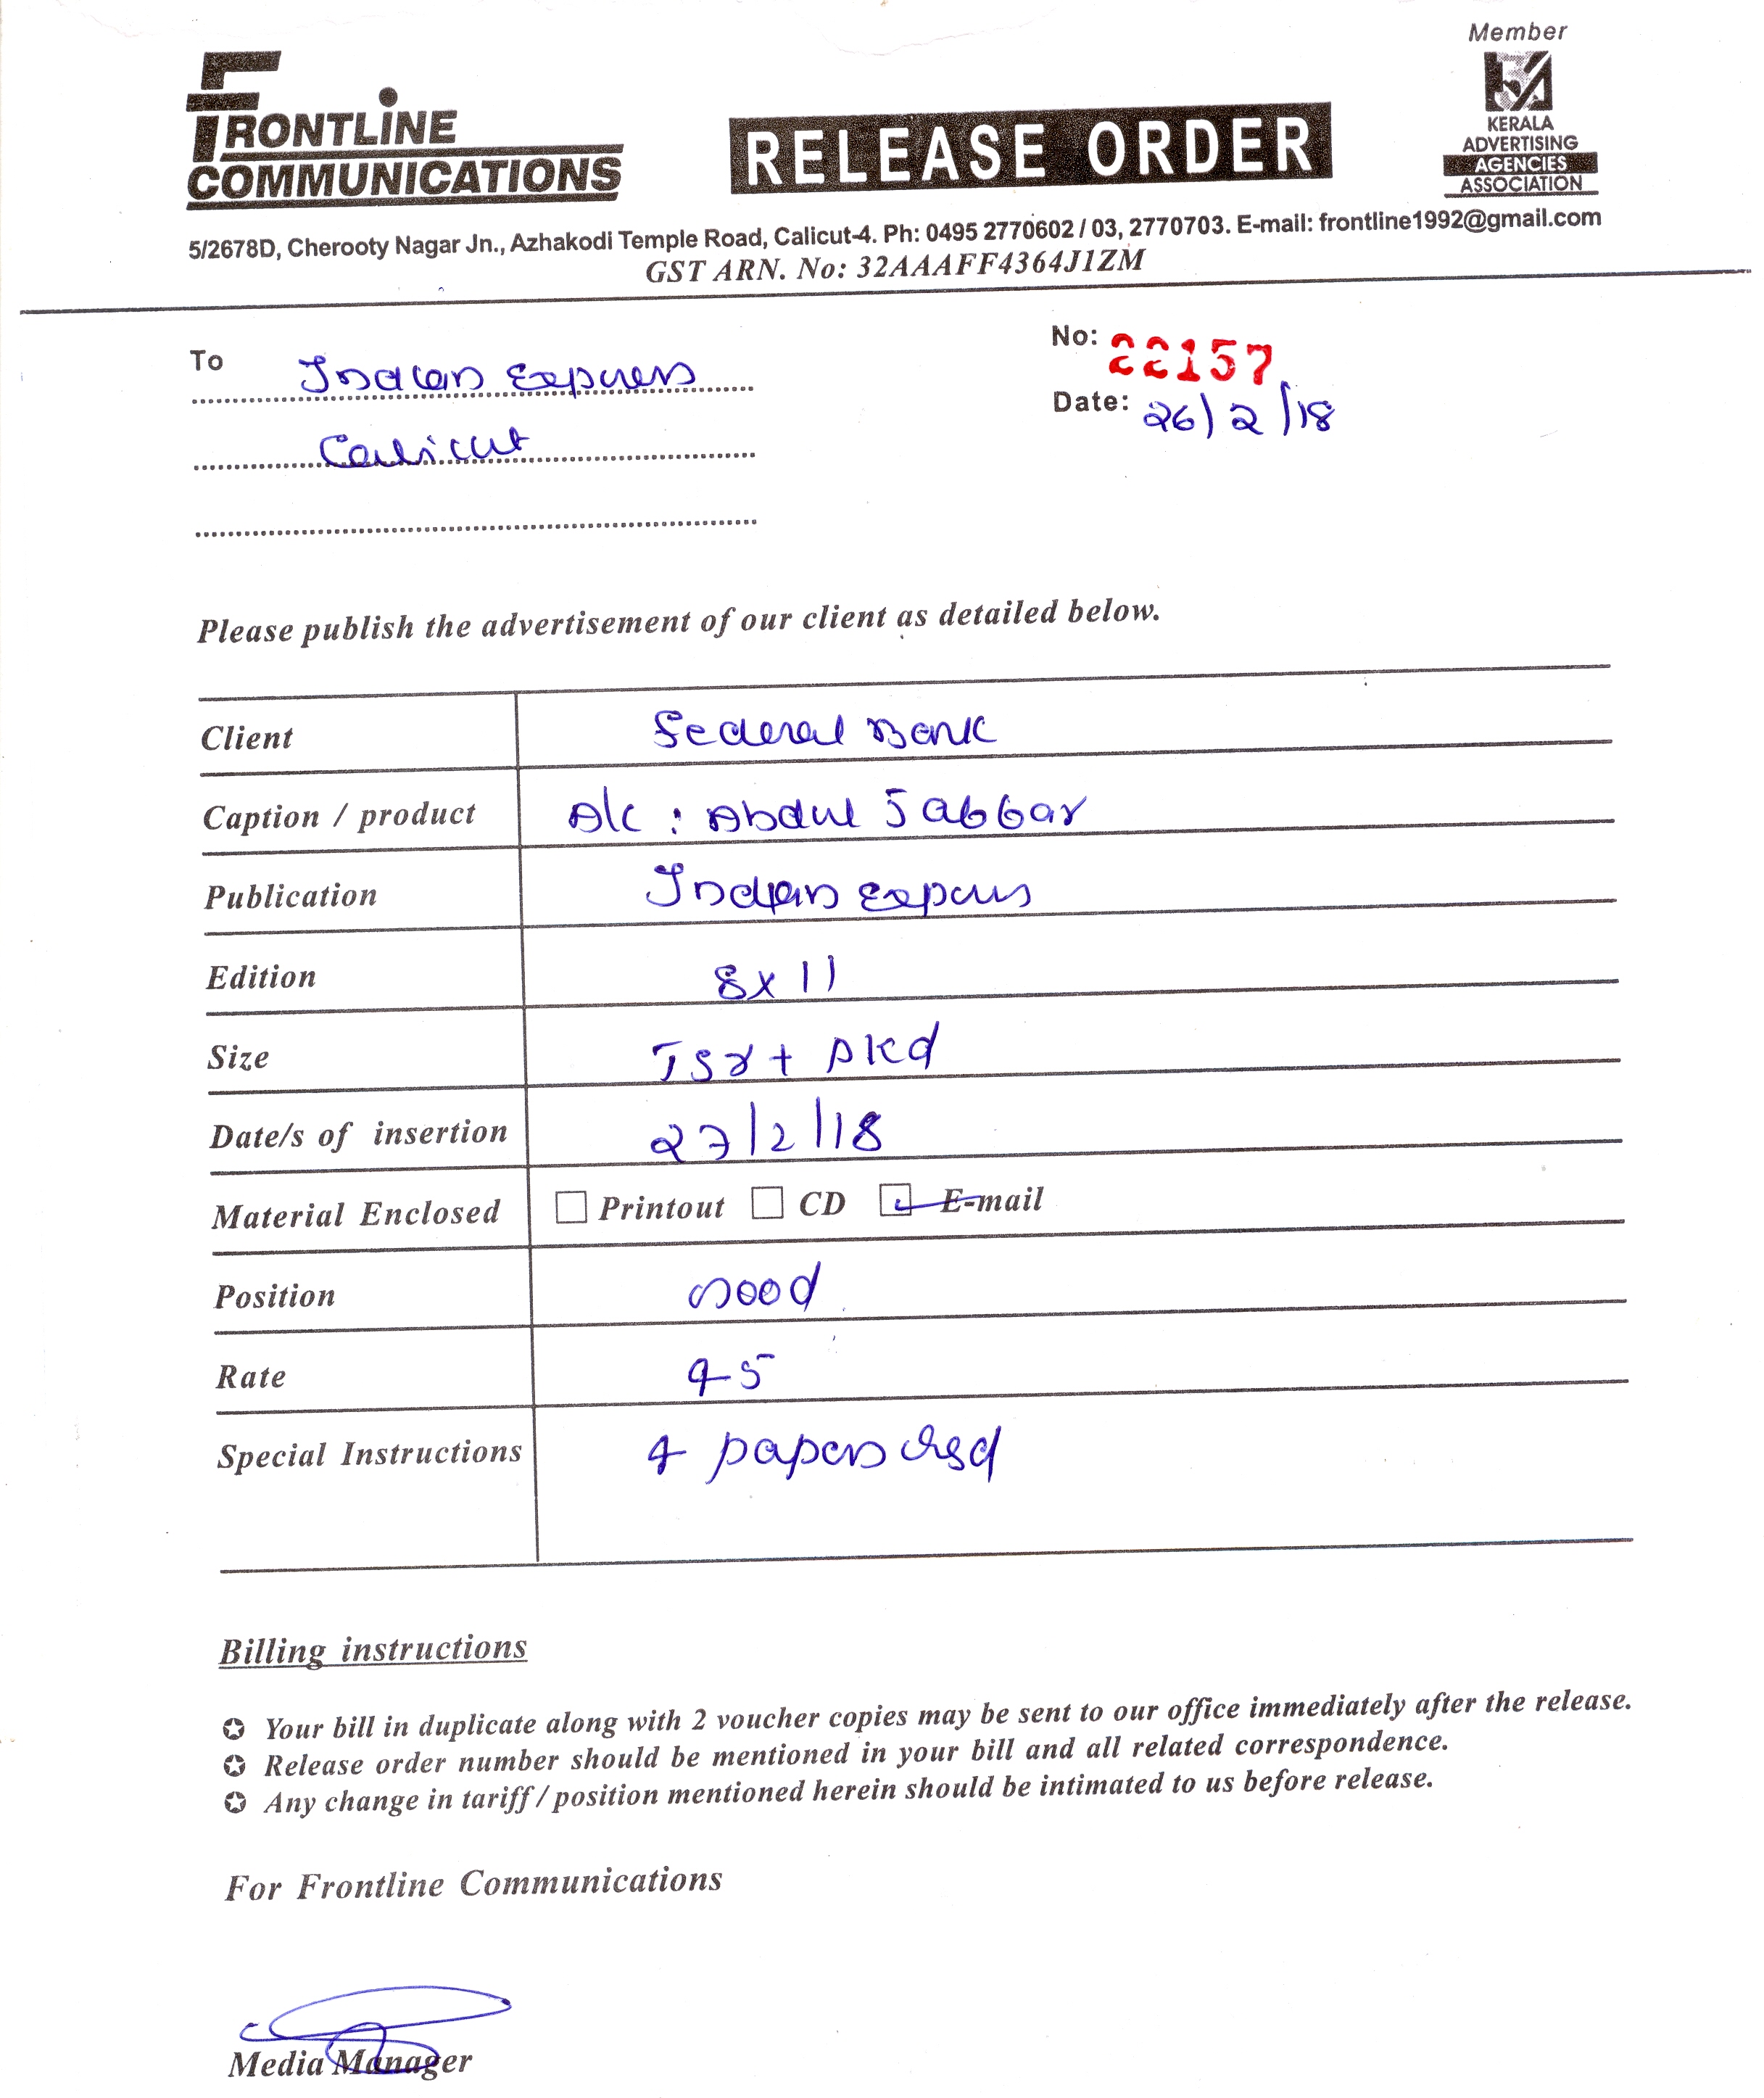 FRONTLINE
COMMUNICATIONS
RELEASE ORDER
Member
KERALA
ADVERTISING
AGENCIES
ASSOCIATION
5/2678D, Cherooty Nagar Jn., Azhakodi Temple Road, Calicut-4. Ph: 0495 2770602 / 03, 2770703. E-mail: frontline1992@gmail.com
GST ARN. No: 32AAAFF4364J1ZM
To Indian Express
Calicut
No: 22157
Date: 26/2/18
Please publish the advertisement of our client as detailed below.
Client Federal Bank
Caption / product A/c : Abdul Jabbar
Publication Indian Express
Edition 8x11
Size TSR + PKd
Date/s of insertion 27/2/18
Material Enclosed Printout CD E-mail
Position Good
Rate 95
Special Instructions 4 papers
Billing instructions
Your bill in duplicate along with 2 voucher copies may be sent to our office immediately after the release.
Release order number should be mentioned in your bill and all related correspondence.
Any change in tariff / position mentioned herein should be intimated to us before release.
For Frontline Communications
Media Manager